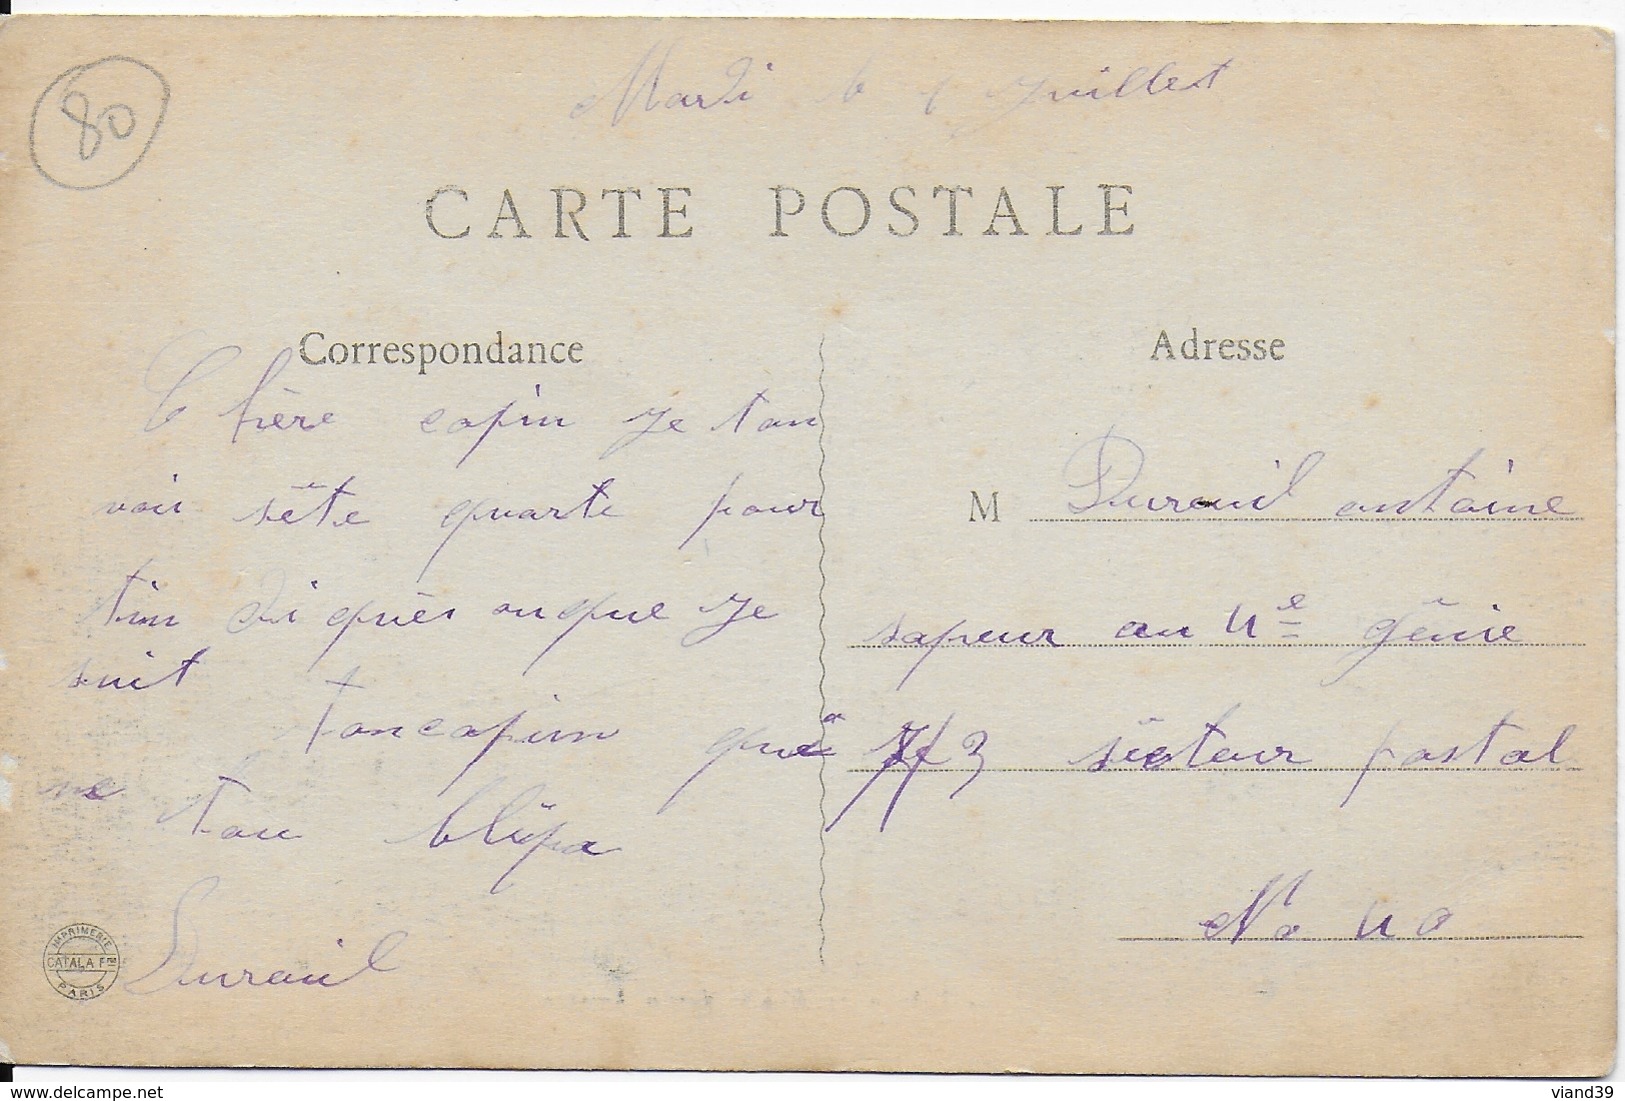 80
Mardi le 1 Juillet
CARTE POSTALE
Correspondance
Chère copin je tan
voii sête quarte pour
tin diquèr ouque je
suit toncopin que
ne tou blipa
Dureuil
IMPRIMERIE CATALA FRES PARIS
Adresse
M Dureuil antoine
sapeur au 4e gênie
7/3 sècteur postal
No 40
www.delcampe.net
viand39